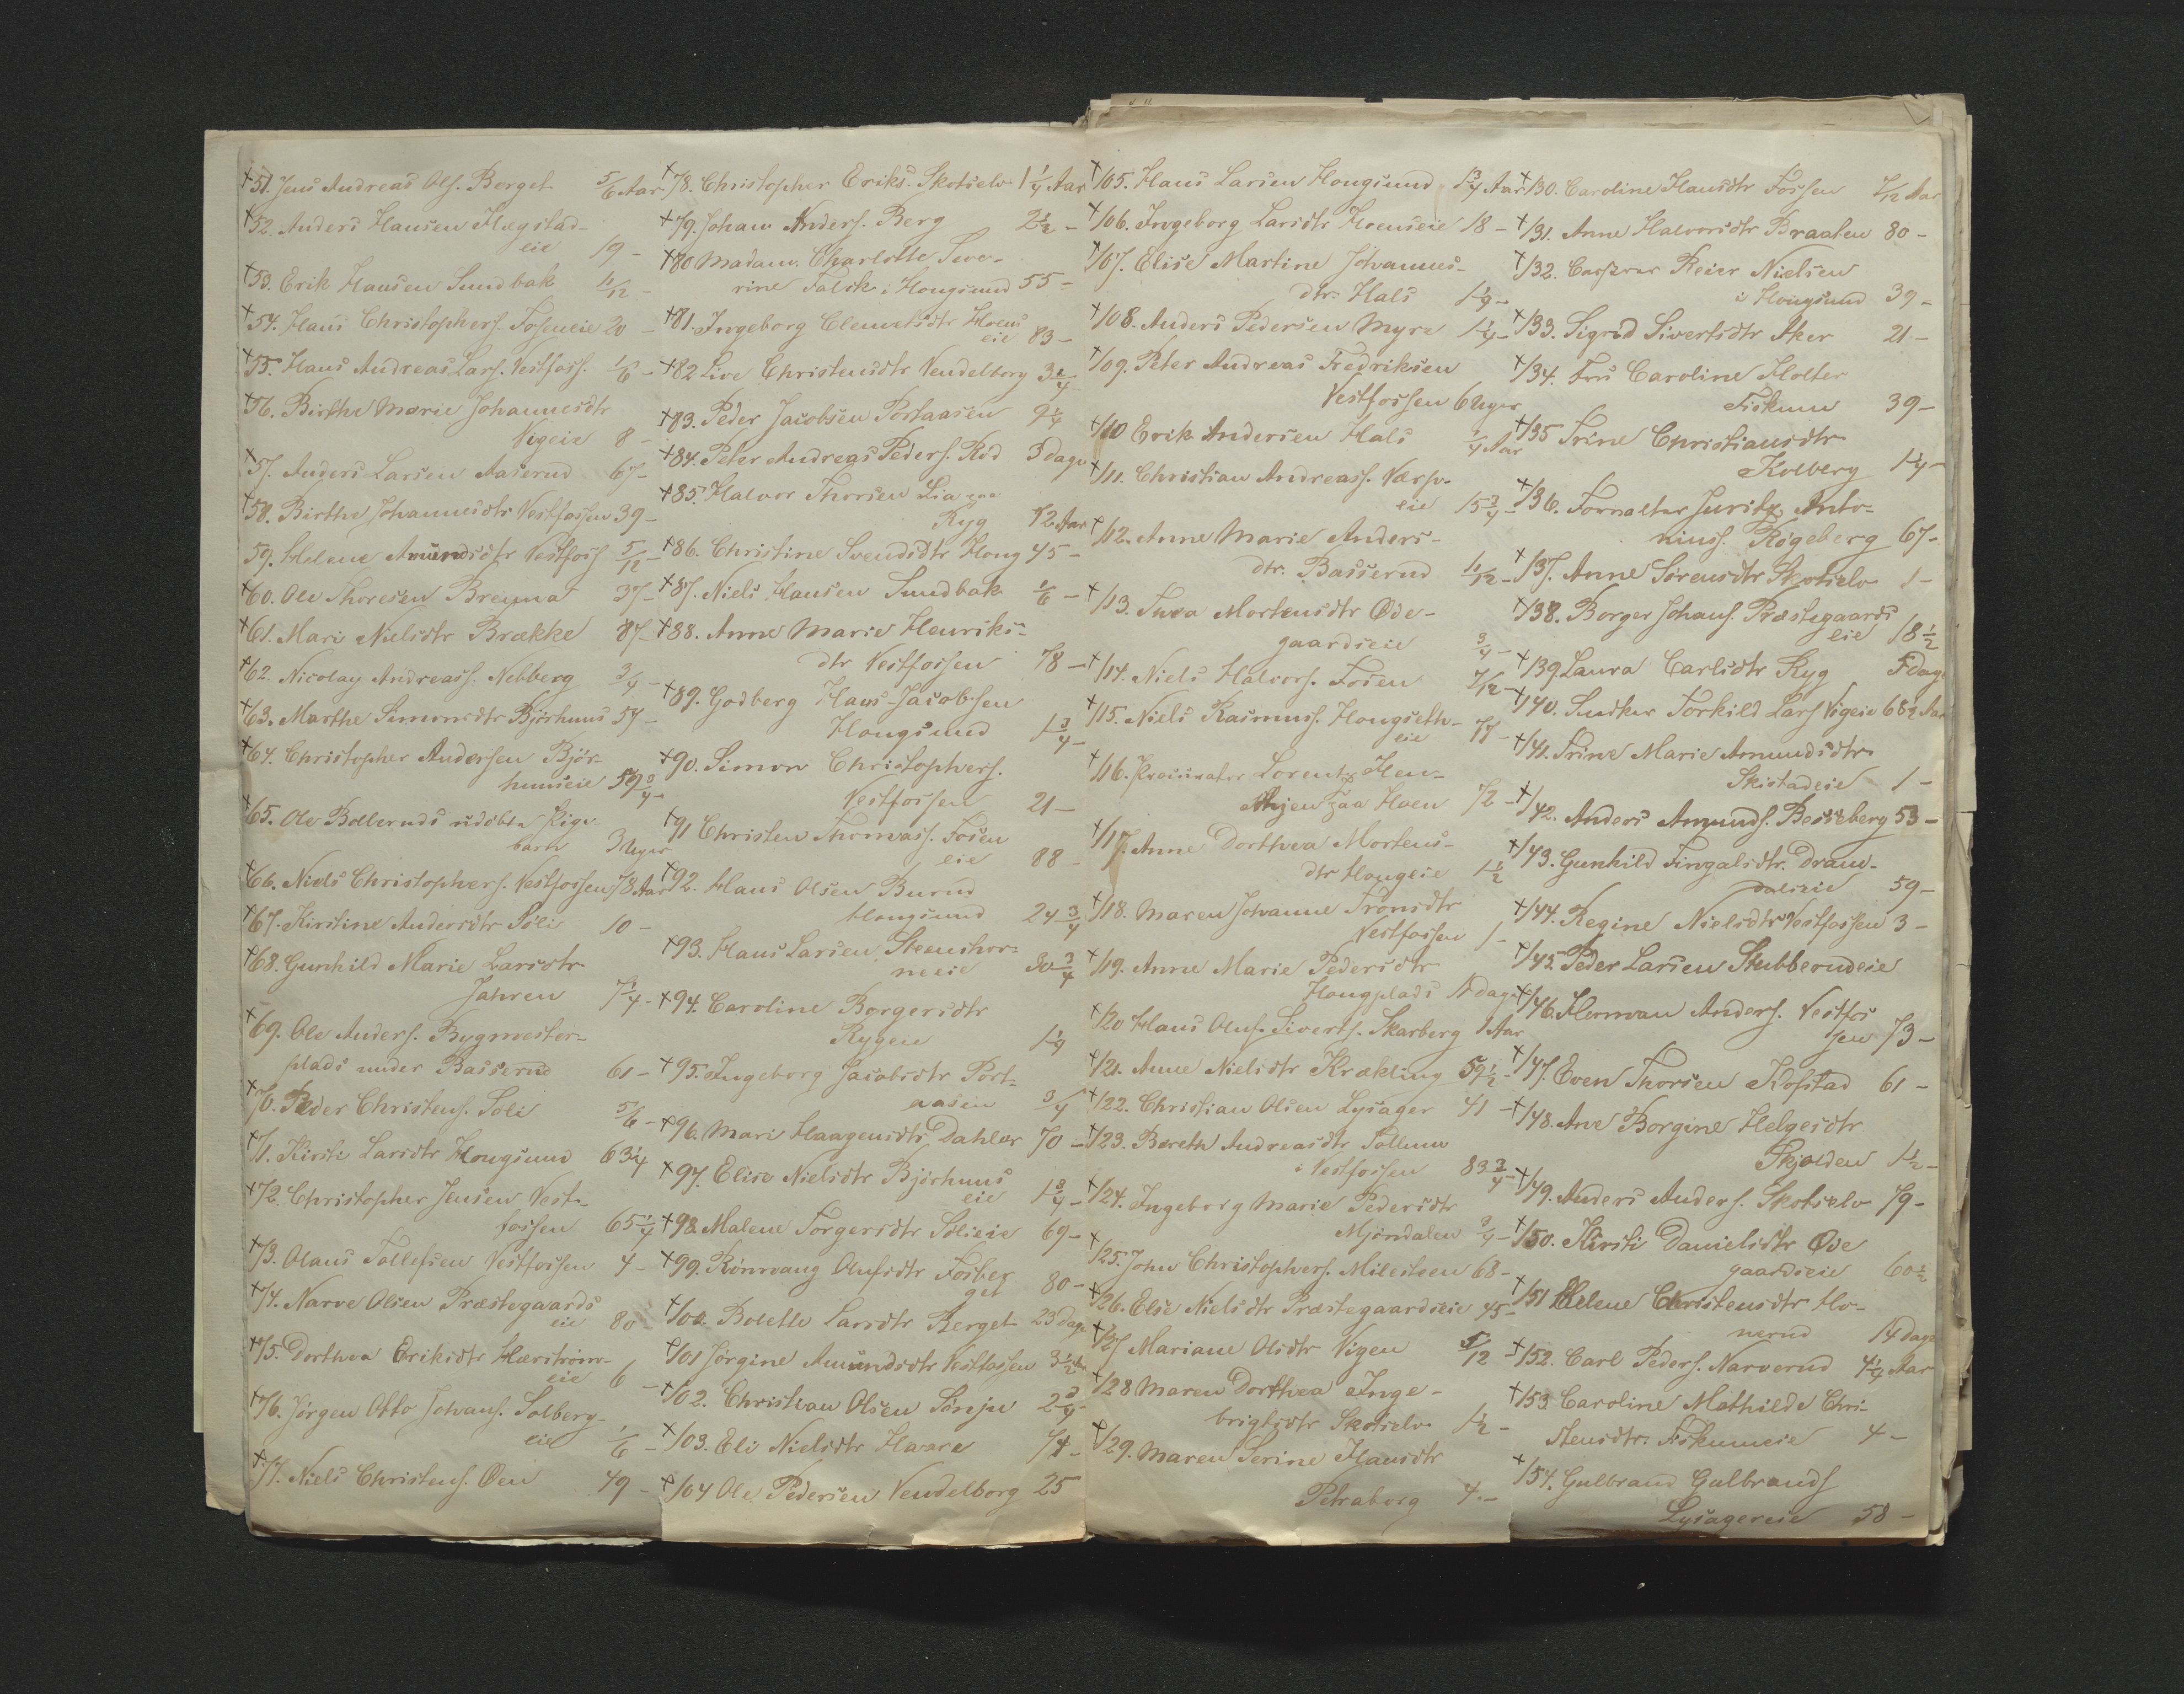 +51. Jens Andreas Ols. Berget 5/6 Aar
+52. Anders Hansen Hægstad-
eie 19 -
+53. Erik Hansen Sundbak 11/12 -
+54. Hans Christophers. Foseneie 20 -
+55. Hans Andreas Lars. Vestfoss. 1/6 -
+56. Birthe Marie Johannesdtr
Vigeie 8 -
+57. Anders Larsen Aaserud 67 -
+58. Birthe Johannesdtr Vestfossen 39 -
59. Helene Amundsdtr Vestfoss 5/12 -
+60. Ole Thoresen Breyma 37 -
+61. Mari Nielsdtr Brække 87 -
+62. Nicolay Andreass. Nebberg 3/4 -
+63. Marthe Simonsdtr Bjørhuus 54 -
+64. Christopher Andersen Bjør-
huuseie 59 3/4 -
+65. Ole Bolleruds udøbte Pige-
barn 3 Uger
+66. Niels Christophers. Vestfossen 78 Aar
+67. Kirstine Andersdtr Søli 10 -
+68. Gunhild Marie Larsdtr
Jahren 7 1/4 -
+69. Ole Anders. Bygmester-
plads under Basserud 61 -
+70. Peder Christens. Soli 5/6 -
+71. Kirsti Larsdtr Hougsund 63 1/4
+72. Christopher Jensen Vest-
fossen 65 1/4
+73. Olaus Tollefsen Vestfossen 4 -
+74. Narve Olsen Præstegaards
eie 80 -
+75. Dorthea Eriksdtr Hærstrøm-
eie 6 -
+76. Jørgen Otto Johans. Solberg-
eie 1/6 -
+77. Niels Christens. Øen 49 -
+78. Christopher Eriks. Skotselv 1 1/4 Aar
+79. Johan Anders. Berg 2 1/2 -
+80 Madam Charlotte Seve-
rine Falck i Hougsund 55 -
+81. Ingeborg Clemetsdtr Hoens
eie 83 -
+82 Live Christensdtr Vendelborg 3 1/4
+83. Peder Jacobsen Portaasen 9 1/4
+84. Peter Andreas Peders. Rød 3 dage
+85. Halvor Thorsen Lia paa
Ryg 72 Aar
+86. Christine Svendsdtr Houg 45 -
+87. Niels Hansen Sundbak 1/6 -
+88. Anne Marie Henriks-
dtr Vestfossen 78 -
+89. Godberg Hans Jacobsen
Hougsund 1 3/4 -
+90. Simon Christophers.
Vestfossen 21 -
+91 Christen Thomass. Fosen
eie 88 -
+92. Hans Olsen Burud
Hougsund 24 3/4
+93. Hans Larsen Steenshor-
neeie 30 3/4
+94. Caroline Borgersdtr
Rygeie 1 1/4
+95. Ingeborg Jacobsdtr Port-
aasen 3/4
+96. Mari Haagensdtr Dahler 70 -
+97. Elise Nielsdtr Bjørhuus
eie 1 3/4 -
+98. Malene Torgersdtr Solieie 69 -
+99. Rønnvaug Olufsdtr Fosber
get 80 -
+100. Bolette Larsdtr Berget 23 dage
+101 Jørgine Amundsdtr Vestfossen 3 1/2 Aar
+102. Christian Olsen Sønju 2 3/4
+103. Eli Nielsdtr Haare 74 -
+104 Ole Pedersen Vendelborg 25
+105. Hans Larsen Hougsund 1 3/4 Aar
+106. Ingeborg Larsdtr Hoenseie 18 -
+107. Elise Martine Johannes-
dtr. Hals 1 1/4 -
+108. Anders Pedersen Myre 1 1/4 -
+109. Peter Andreas Fredriksen
Vestfossen 6 Uger
+110 Erik Andersen Hals 1/4 Aar
+111. Christian Andreass. Værp-
eie 15 3/4 -
+112. Anne Marie Anders-
dtr. Basserud 11/12 -
+113. Thea Mortensdtr Øde-
gaardseie 3/4 -
+114. Niels Halvors. Fosen 7/12 -
+115. Niels Rasmuss. Hougseth-
eie 77 -
+116. Procurator Lorentz Hen-
paa Hoen 72 -
+117. Anne Dorthea Mortens-
dtr Hougeie 1 1/2
+118. Maren Johanne Tronsdtr
Vestfossen 1 -
+119. Anne Marie Pedersdtr
Hougplads 1 dag
+120 Hans Oluf Siverts. Skarberg 1 Aar
+121. Anne Nielsdtr Krækling 59 1/2 -
+122. Christian Olsen Lysager 41 -
+123. Bereth Andreasdtr Sollum
i Vestfossen 83 3/4
+124. Ingeborg Marie Pedersdtr
Mjøndalen 3/4 -
+125. John Christophers. Milesteen 68 -
+126. Else Nielsdtr Præstegaardseie 45 -
+127 Mariane Olsdtr Vigen 5/12 -
+128 Maren Dorthea Inge-
brigtsdtr Skotselv 1 1/2 -
+129. Maren Serine Hansdtr
Petraborg 4. -
+130. Caroline Hansdtr Fossen 7/12 Aar
+131. Anne Halvorsdtr Braaten 80 -
+132. Reier Nielsen
i Hougsund 39 -
+133. Sigrid Sivertsdtr Aker 21 -
+134. Fru Caroline Holter
Fiskum 39 -
+135 Trine Christiansdtr
Kolberg 1 1/4 -
+136. Forvalter Juritz Anto-
niuss. Rogeberg 67 -
+137. Anne Sørensdtr Skotselv 1 -
+138. Borger Johans. Præstegaards
eie 18 1/2
+139. Laura Carlsdtr Ryg 5 dage
+140. Snedker Torkild Lars. Vigeie 68 1/2 Aar
+141. Trine Marie Amundsdtr
Skistadeie 1 -
+142. Anders Amunds. Besseberg 53 -
+143. Gunhild Fingalsdtr. Dram-
dalseie 59 -
+144. Regine Nielsdtr Vestfossen 3 -
+145. Peder Larsen Stubberudeie
+146. Herman Anders. Vestfos
sen 73 -
+147. Even Thorsen Kofstad 61 -
+148. Ane Borgine Helgesdtr
Skjolden 1 1/2 -
+149. Anders Anders. Skotselv 79 -
+150. Kirsti Danielsdtr Øde
gaardseie 60 1/2
+151 Helene Christensdtr Ho-
nerud 14 dage
+152. Carl Peders. Narverud 4 1/4 Aar
+153 Caroline Mathilde Chri-
stensdtr. Fiskumeie 4 -
+154. Gulbrand Gulbrands
Lysagereie 58 -